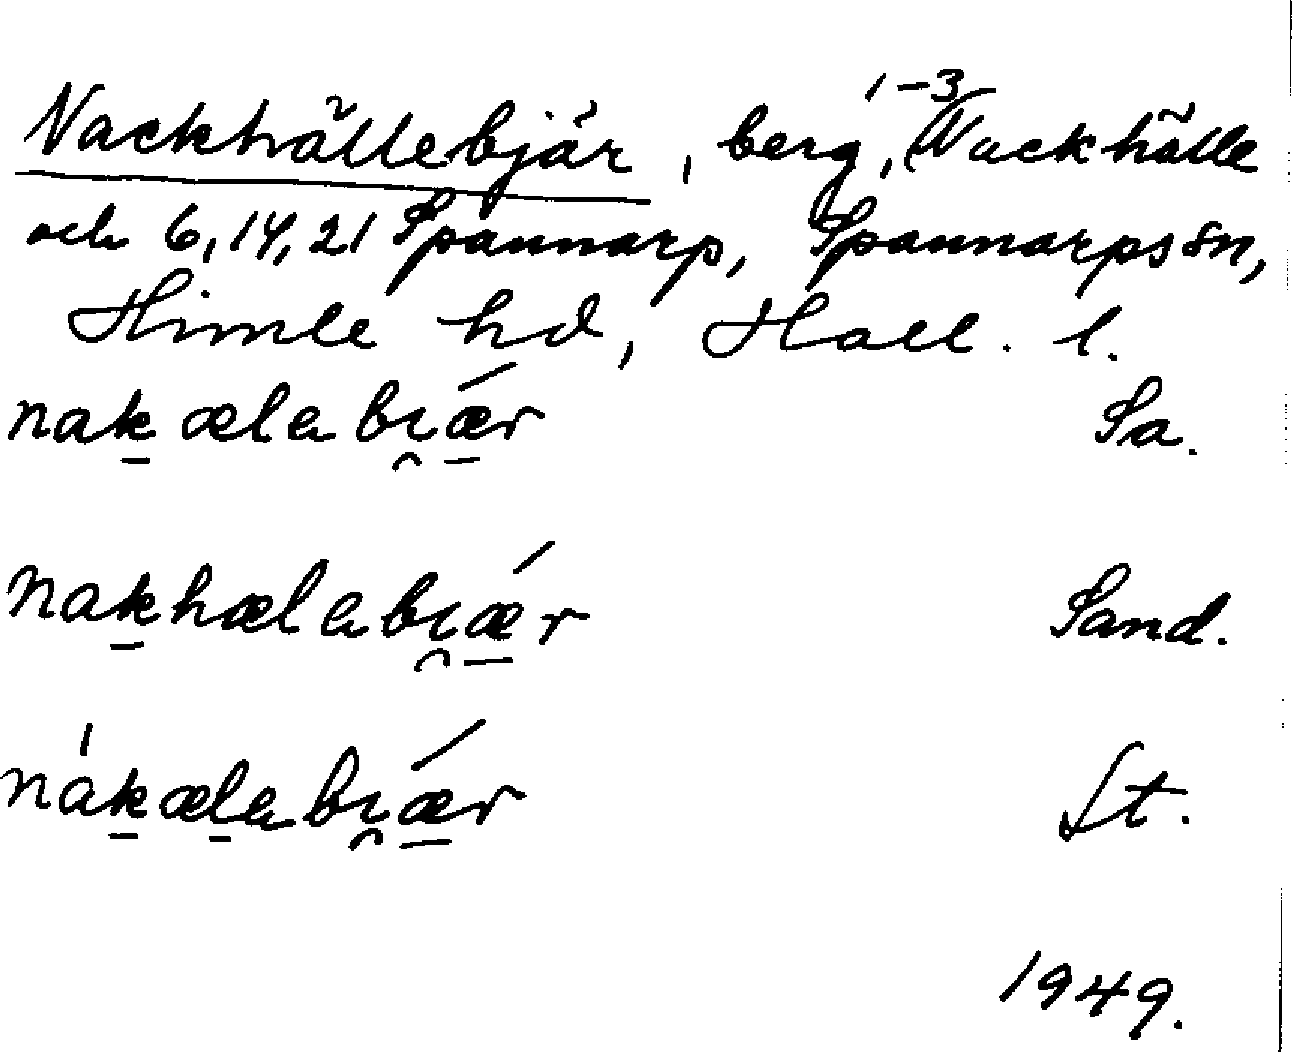 Nackhällebjär, berg, 1-3 Nackhälle
och 6, 14, 21 Spannarp, Spannarps sn,
Himle hd, Hall. l.
nak̲ælabi̯ǽ̲r Sa.
nak̲hælabi̯ǽ̲r Sand.
nák̲æl̲abi̯ǽ̲r St.
1949.